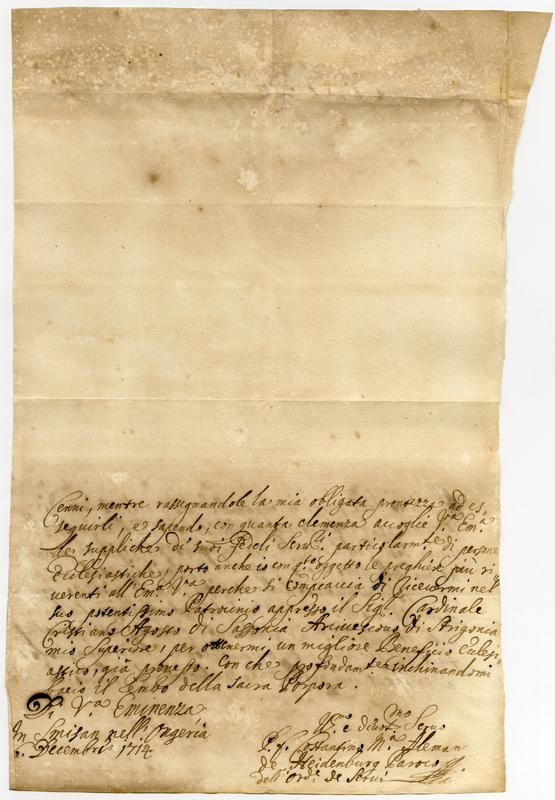 Cenni, mentre rassegnandole la mia obligata prontezza ad es,
seguirli, e sapendo, con quanta clemenza accoglie V.ra Em.a
le suppliche de suoi Fedeli Serui particolarm.te di persone
Ecclesiastiche, porto anche io con q.to oggetto le preghiere piu ri
uerenti all Em.a V.ra perche si compiaccia di riceuermi nel
suo potentissimo Patrocinio appresso il Sig.r Cardinale
Cristiano Agosto di Sassonia Arciuescouo di Strigonia
mio Superiore, per ottenermi un migliore Beneficio Eclesi
astico, già promesso. Con che profondam.te inchinandomi
bacio il Lembo della Sacra Porpora.
Di V.ra Eminenza
In nell' Ongeria
Decembris 1714
H.mo e diuot.mo Seru
P. f. Costantino M.a Aleman
de Heidenburg Paroco
dell'Ord.e de Serui